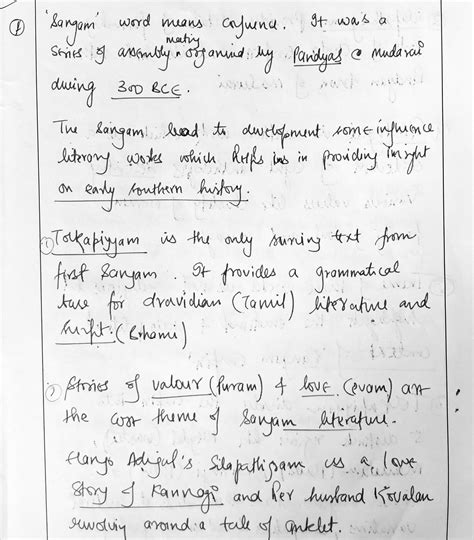 ①
'Sangam' word means confluence. It was a
series of assembly meeting organised by Pandyas @ Mudarai
during 300 BCE.
The Sangam lead to development some influence
literary works which helps us in providing insight
on early southern history.
① Tolkapiyyam is the only surviving text from
first Sangam. It provides a grammatical
base for dravidian (Tamil) literature and
script. (Brhami)
② Stories of valour (Puram) & love (evam) are
the core theme of Sangam literature.
Elango Adigal's Silapathigam is a love
story of Kannagi and her husband Kovalan
revolving around a tale of anklet.